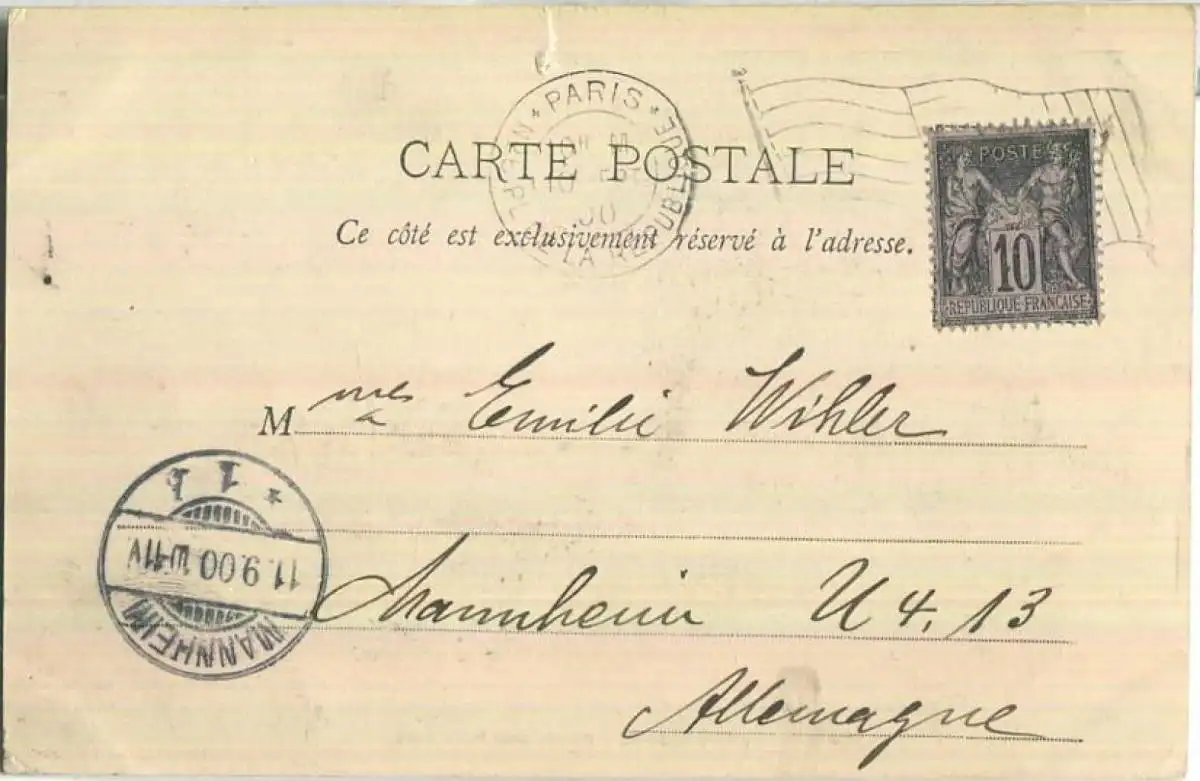 PARIS
PL. DE LA RÉPUBLIQUE
CARTE POSTALE
Ce côté est exclusivement réservé à l'adresse.
POSTE
10
RÉPUBLIQUE FRANÇAISE
M Emilie Wihler
Mannheim U 4, 13
Allemagne
MANNHEIM
11.9.00
1 b